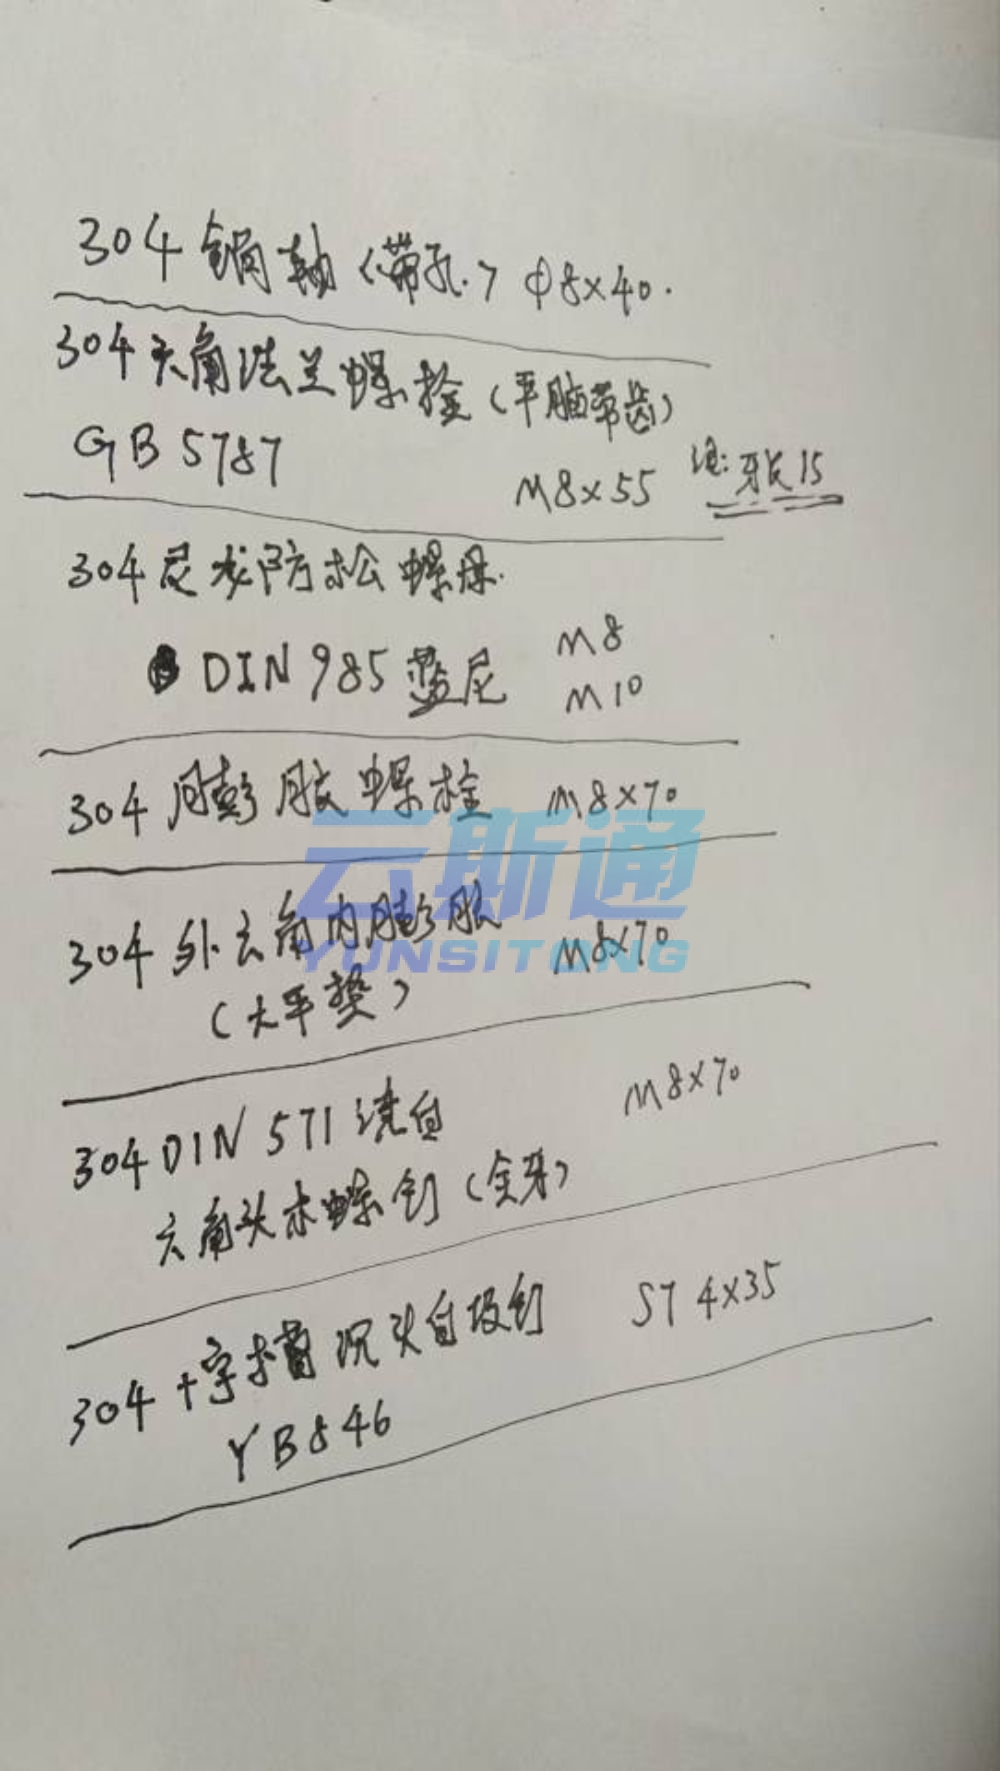 304 销轴（带孔.）φ8×40.
304 六角法兰螺栓（平脑带齿）
GB 5787
M8×55 注: 牙长15
304 尼龙防松螺母.
DIN 985 蓝尼 M8
M10
304 膨胀螺栓 M8×70
云斯通
YUNSITONG
304 外六角内膨胀 M8×70
（大平垫）
304 DIN 571 洗白 M8×70
六角头木螺钉（全牙）
304 十字 沉头自攻钉 ST 4×35
YB846